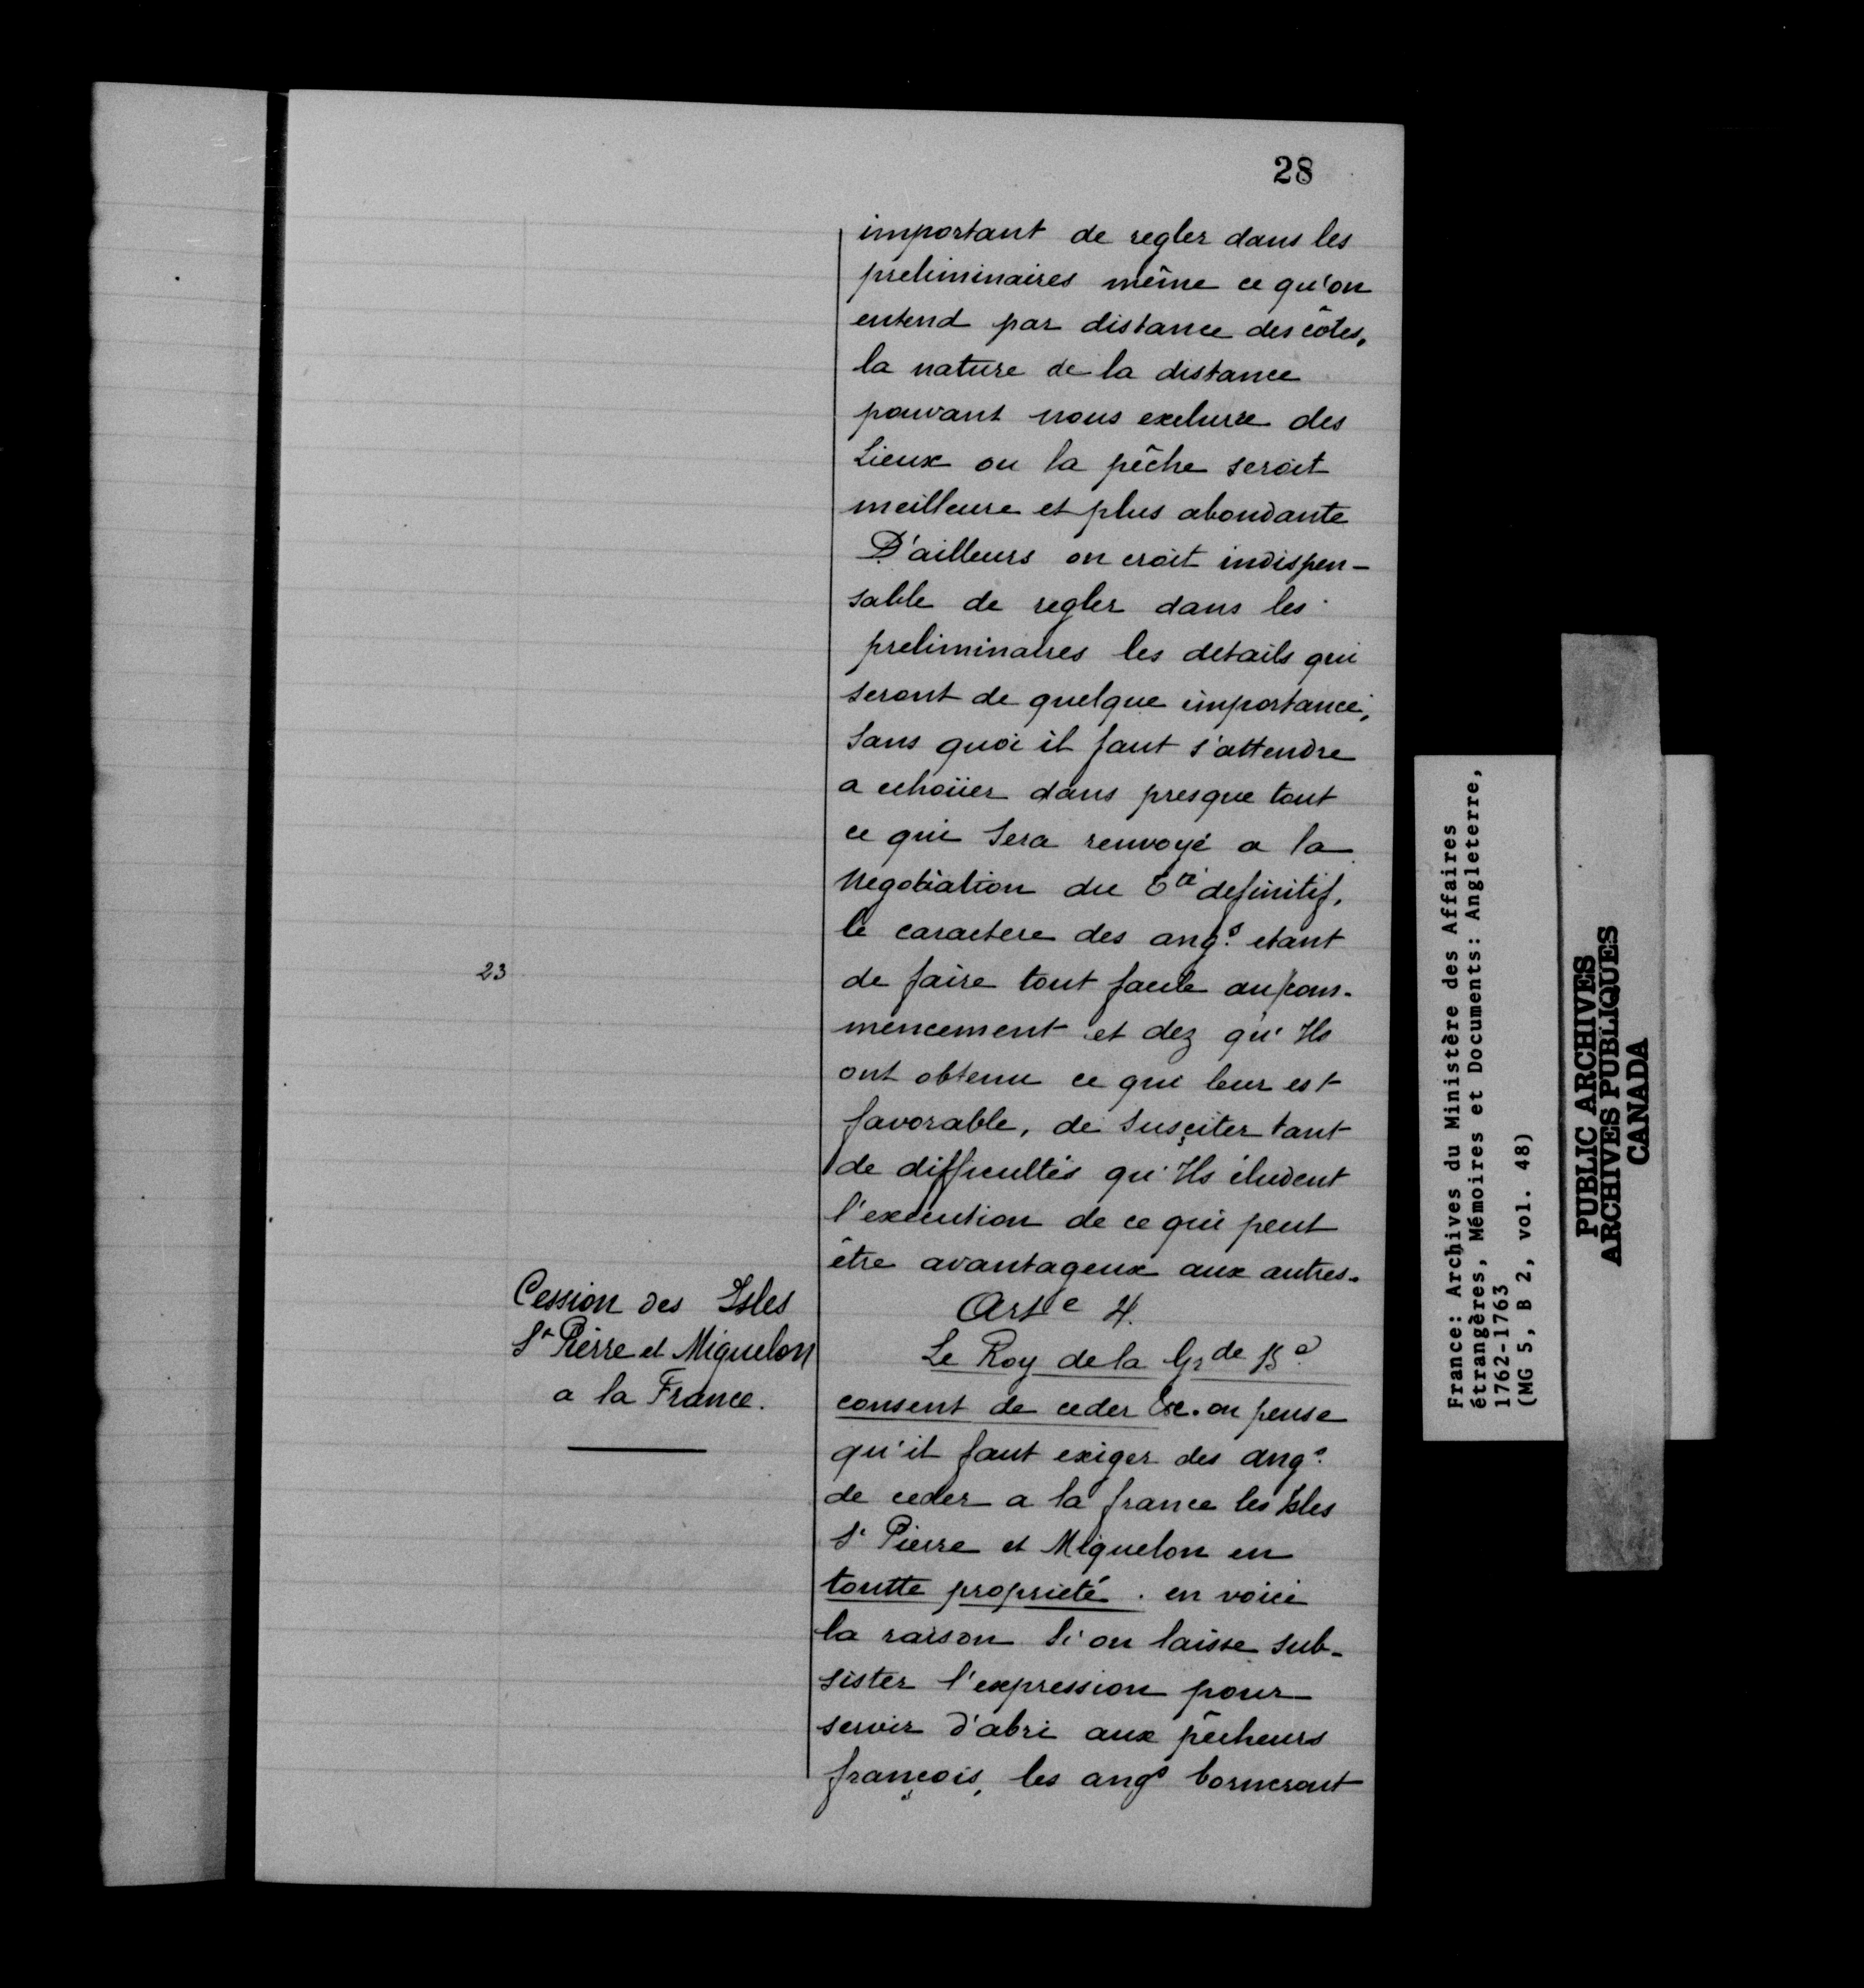 28
important de regler dans les
preliminaires même ce qu'on
entend par distance des côtes,
la nature de la distance
pouvant nous exclurre des
Lieux ou la pêche seroit
meilleure et plus abondante
D'ailleurs on croit indispen-
sable de regler dans les
preliminaires les details qui
seront de quelque importance,
Sans quoi il faut s'attendre
a echoüer dans presque tout
ce qui Sera renvoyé a la
Negotiation du Tté definitif,
le caractere des angs etant
de faire tout facile au com-
23
mencement et dez qu'Ils
ont obtenu ce qui leur est
favorable, de Susciter tant
de difficultés qu'Ils éludent
l'execution de ce qui peut
être avantageux aux autres.
Cession des Isles
St Pierre et Miquelon
a la France.
Arte 4.
Le Roy de la Grde Ba
consent de ceder &c. on pense
qu'il faut exiger des angs
de ceder a la france les Isles
St Pierre et Miquelon en
toutte proprieté. en voici
la raison Si on laisse sub-
sister l'expression pour
servir d'abri aux pêcheurs
françois, les angs borneront
France: Archives du Ministère des Affaires
étrangères, Mémoires et Documents: Angleterre,
1762-1763
(MG 5, B 2, vol. 48)
PUBLIC ARCHIVES
ARCHIVES PUBLIQUES
CANADA